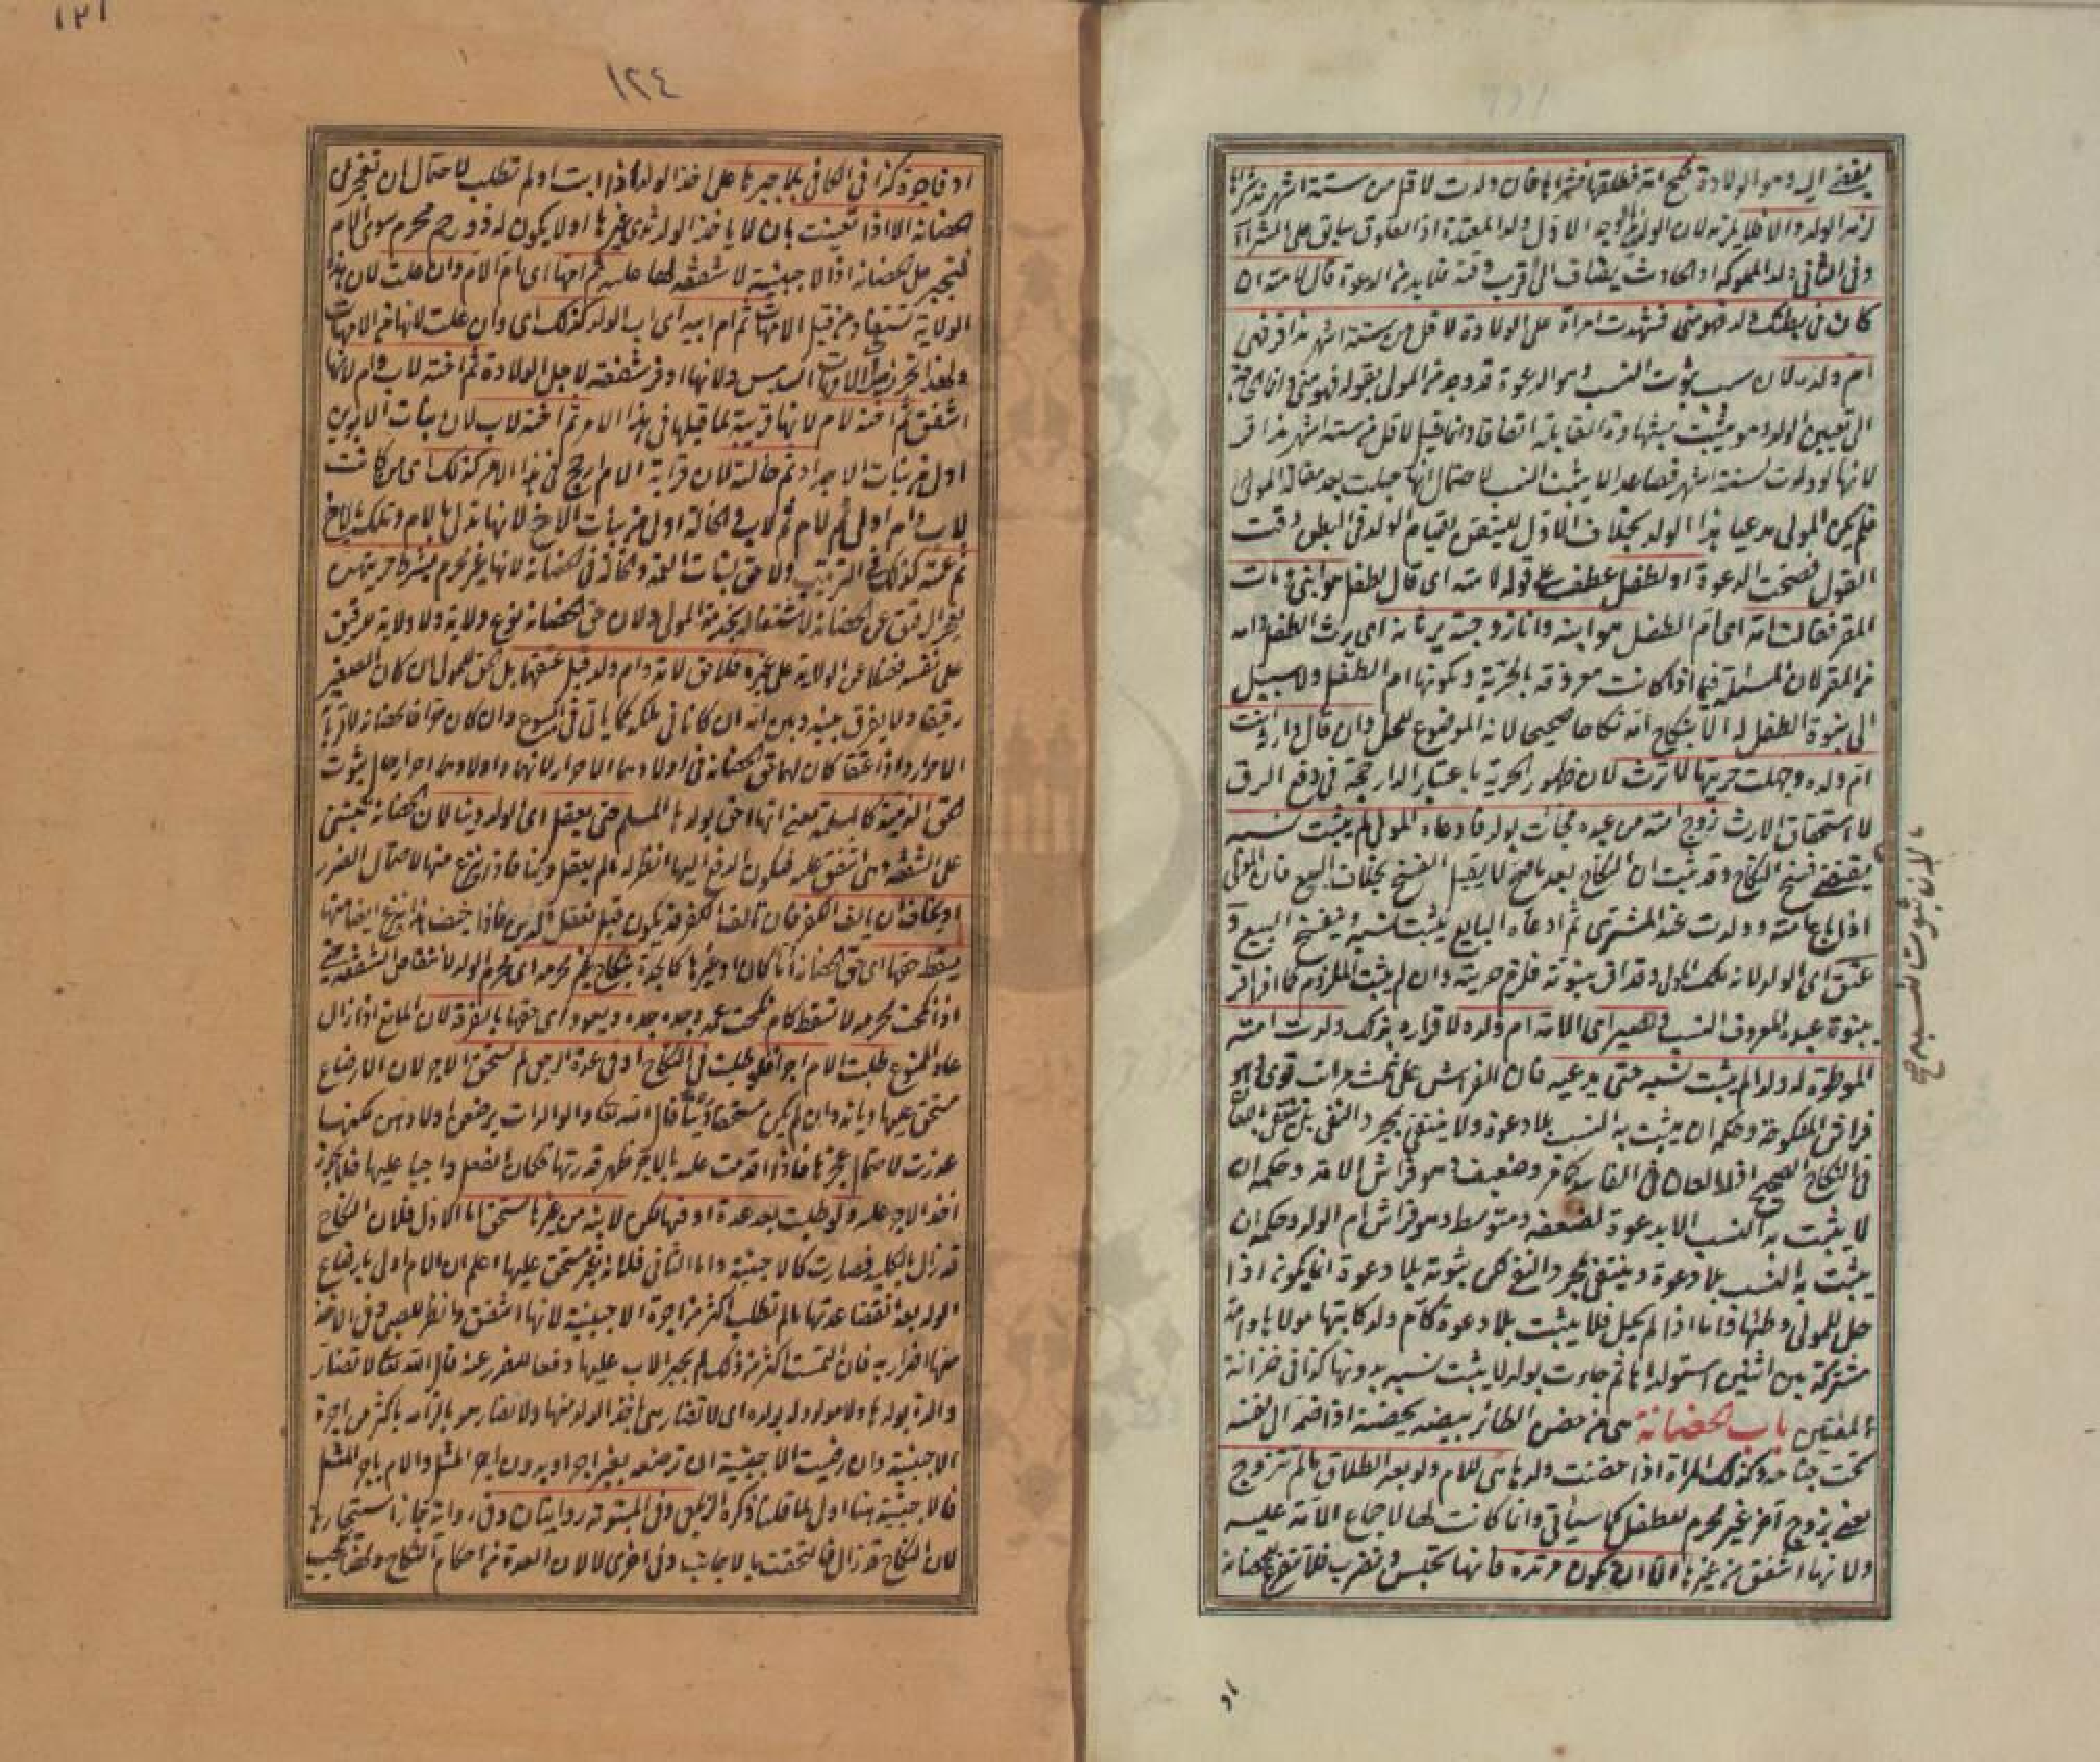 يفضى اليه وهو الولادة نكح امة فطلقها فشراها فان ولدت لاقل من ستة اشهر منذ شراها
لزمه الولد والا فلا يلزمه لان الولد فى الوجه الاول ولد المعتدة اذ العلوق سابق على الشراء
وفى الثانى ولد المملوكة اذ الحادث يضاف الى اقرب وقته فلا بد من الدعوة قال لامته ان
كان فى بطنك ولد فهو منى فشهدت امراة على الولادة لاقل من ستة اشهر منذ اقر فهى
ام ولده لان سبب ثبوت النسب وهو الدعوة قد وجد من المولى بقوله فهو منى وانما الحاجة
الى تعيين الولد وهو يثبت بشهادة القابلة اتفاقا وانما قيل لاقل من ستة اشهر منذ اقر
لانها لو ولدت لستة اشهر فصاعدا لا يثبت النسب لاحتمال انها حبلت بعد مقالة المولى
فلم يكن المولى مدعيا هذا الولد بخلاف الاول لتيقن بقيام الولد فى البطن وقت
القول فصحت الدعوة او لطفل عطف على قوله لامته اى قال لطفل هو ابنى ومات
المقر فقالت امه اى ام الطفل هو ابنه وانا زوجته يرثانه اى يرث الطفل وامه
من المقر لان المسئلة فيما اذا كانت معروفة بالحرية وبكونها ام الطفل ولا سبيل
الى بنوة الطفل له الا بنكاح امه نكاحا صحيحا لانه الموضوع للحل وان قال وارثه انت
ام ولده وجهلت حريتها لا ترث لان ظهور الحرية باعتبار الدار حجة فى دفع الرق
لا استحقاق الارث زوج امته من عبده فجاءت بولد فادعاه المولى لم يثبت نسبه
يقتضى فسخ النكاح وقد ثبت ان النكاح بعد ما صح لا يقبل الفسخ بخلاف البيع فان المولى
اذا باع امته وولدت عند المشترى ثم ادعاه البايع يثبت نسبه وينفسخ البيع و
عتق اى الولد لانه ملك المولى وقد اقر ببنوته فلزم حريته وان لم يثبت الملزوم كما اذا اقر
ببنوة عبده المعروف النسب وتصير اى الامة ام ولده لاقراره بذلك ولدت امته
الموطوءة له ولدا لم يثبت نسبه حتى يدعيه فان الفراش على ثلث مراتب قوى وهو
فراش المنكوحة وحكمه ان يثبت به النسب بلا دعوة ولا ينتفى بمجرد النفى بل ينتفى باللعان
فى النكاح الصحيح اذ لا لعان فى الفاسد كما مر وضعيف وهو فراش الامة وحكمه ان
لا يثبت به النسب الا بدعوة لضعفه ومتوسط وهو فراش ام الولد وحكمه ان
يثبت به النسب بلا دعوة وينتفى بمجرد النفى لكن ثبوته بلا دعوة انما يكون اذا
حل للمولى وطئها فاما اذا لم يحل فلا يثبت بلا دعوة كام ولد كاتبها مولاها وامة
مشتركة بين اثنين استولداها ثم جاءت بولد لا يثبت نسبه بدونها كذا فى خزانة
المفتين باب الحضانة هى من حضن الطائر بيضه يحضنه اذا ضمه الى نفسه
تحت جناحه وكذلك المراة اذا حضنت ولدها هى للام ولو بعد الطلاق ما لم تتزوج
يعنى بزوج آخر غير محرم للطفل كما سياتى وانما كانت لها لاجماع الامة عليه
ولانها اشفق من غيرها الا ان تكون مرتدة فانها تحبس وتضرب فلا تتفرغ للحضانة
لان ثبوت النسب صح
او
١٢١
١٢٤
او فاجرة كذا فى الكافى بلا جبرها على اخذ الولد اذا ابت او لم تطلب لاحتمال ان تعجز عن
الحضانة الا اذا تعينت بان لا ياخذ الولد ثدى غيرها او لا يكون له ذو رحم محرم سوى الام
فتجبر على الحضانة اذ الاجنبية لا شفقة لها عليه ثم امها اى ام الام وان علت لان هذه
الولاية تستفاد من قبل الامهات ثم ام ابيه اى اب الولد كذلك اى وان علت لانها من الامهات
ولهذا تحرز ميراث الامهات السدس ولانها اوفر شفقة لاجل الولادة ثم اخته لاب وام لانها
اشفق ثم اخته لام لانها قريبة لما قبلها فى هذا الامر ثم اخته لاب لان بنات الابوين
اولى من بنات الاجداد ثم خالته لان قرابة الام ارجح فى هذا الامر كذلك اى من كانت
لاب وام اولى ثم لام ثم لاب والخالة اولى من بنات الاخ لانها تدلى بالام وتلك بالاخ
ثم عمته كذلك فى الترتيب ولا حق لبنات العمة والخالة فى الحضانة لانها غير محرم بشرط حريتهن
لعجز الرقيق عن الحضانة لاشتغاله بخدمة المولى ولان حق الحضانة نوع ولاية ولا ولاية للرقيق
على نفسه فضلا عن الولاية على غيره فلا حق لامة وام ولد قبل عتقهما بل الحق للمولى ان كان الصغير
رقيقا ولا يفرق بينه وبين امه ان كانا فى ملكه كما ياتى فى البيوع وان كان حرا فالحضانة لاقربائه
الاحرار واذا عتقتا كان لهما حق الحضانة فى اولادهما الاحرار لانهما واولادهما احرار حال ثبوت
الحق الذمية كالمسلمة يعنى انها احق بولدها المسلم حتى يعقل اى الولد دينا لان الحضانة تبتنى
على الشفقة وهى اشفق عليه فيكون الدفع اليها انظر له ما لم يعقل دينا فاذا عقل ينزع منها لاحتمال الضرر
او يخاف ان يالف الكفر فان تالف الكفر قد يكون قبل تعقل الدين فاذا خيف هذا ينزع ايضا منها
يسقط حقها اى حق الحضانة اما كان او غيرها كالجدة بنكاح غير محرمه اى محرم الولد لانتقاص الشفقة حتى
اذا نكحت محرمه لا تسقط كام نكحت عمه وجدة جده ويعود اى حقها بالفرقة لان المانع اذا زال
عاد الممنوع طلبت الام اجرا فلو طلبت فى النكاح او فى عدة الرجعى لم تستحق الاجر لان الارضاع
مستحق عليها ديانة وان لم يكن مستحقا دينا قال الله تعالى والوالدات يرضعن اولادهن لكنها
عذرت لاحتمال عجزها فاذا اقدمت عليه بالاجر ظهر قدرتها فكان الفعل واجبا عليها فلا يجوز
اخذ الاجر عليه ولو طلبت بعد عدة او فيها لكن لابنه من غيرها تستحق اما الاول فلان النكاح
قد زال بالكلية فصارت كالاجنبية واما الثانى فلانه غير مستحق عليها اعلم ان الام اولى بارضاع
الولد بعد انقضاء عدتها ما لم تطلب اكثر من اجرة الاجنبية لانها اشفق وانظر للصبى وفى الاخذ
منها اضرار به فان التمست اكثر من ذلك لم يجبر الاب عليها دفعا للضرر عنه قال الله تعالى لا تضار
والدة بولدها ولا مولود له بولده اى لا تضار هى باخذ الولد منها ولا يضار هو بالزامه باكثر من اجرة
الاجنبية وان رضيت الاجنبية ان ترضعه بغير اجر او بدون اجر المثل والام باجر المثل
فالاجنبية هنا اولى لما قلنا ذكره الزيلعى وفى المبتوتة روايتان وفى رواية جاز استئجارها
لان النكاح قد زال فالتحقت بالاجانب وفى اخرى لا لان العدة من احكام النكاح ولهذا تجب